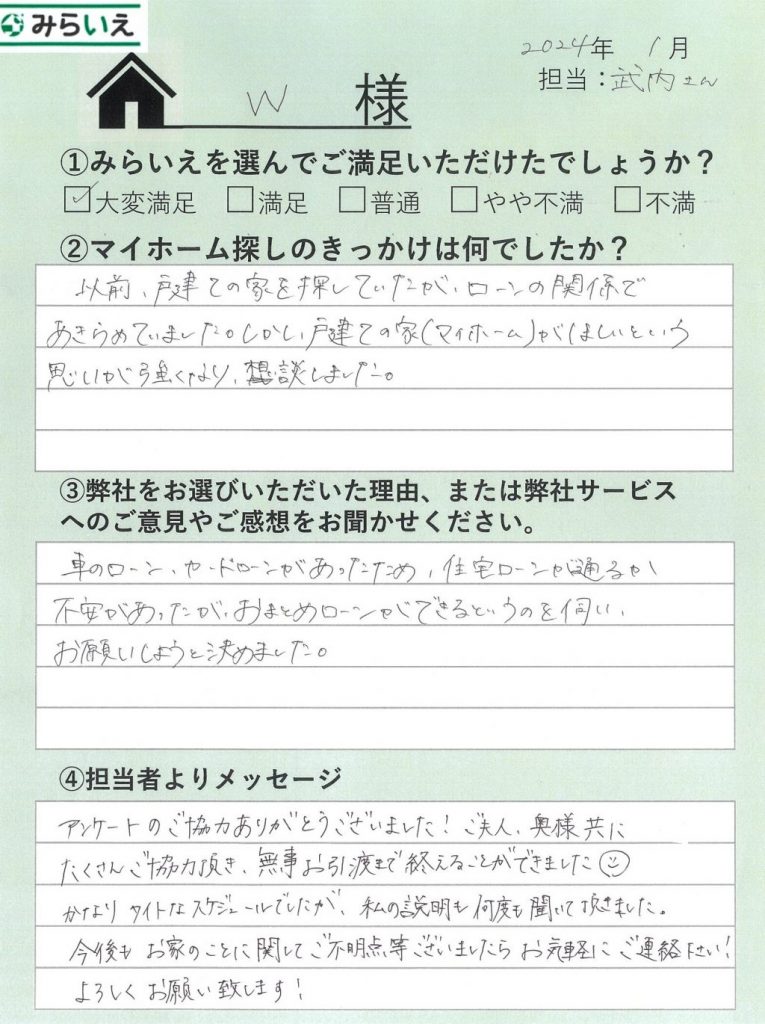 みらいえ
2024年 1月
担当：武内さん
W 様
①みらいえを選んでご満足いただけたでしょうか？
☑大変満足 □満足 □普通 □やや不満 □不満
②マイホーム探しのきっかけは何でしたか？
以前、戸建ての家を探していたが、ローンの関係で
あきらめていました。しかし、戸建ての家(マイホーム)がほしいという
思いが強くなり、想談しました。
③弊社をお選びいただいた理由、または弊社サービス
へのご意見やご感想をお聞かせください。
車のローン、カードローンがあったため、住宅ローンが通るか
不安があったが、おまとめローンができるというのを伺い、
お願いしようと決めました。
④担当者よりメッセージ
アンケートのご協力ありがとうございました！ご夫人、奥様共に
たくさんご協力頂き、無事お引渡まで終えることができました☺
かなりタイトなスケジュールでしたが、私の説明も何度も聞いて頂きました。
今後もお家のことに関してご不明点等ございましたらお気軽にご連絡下さい！
よろしくお願い致します！